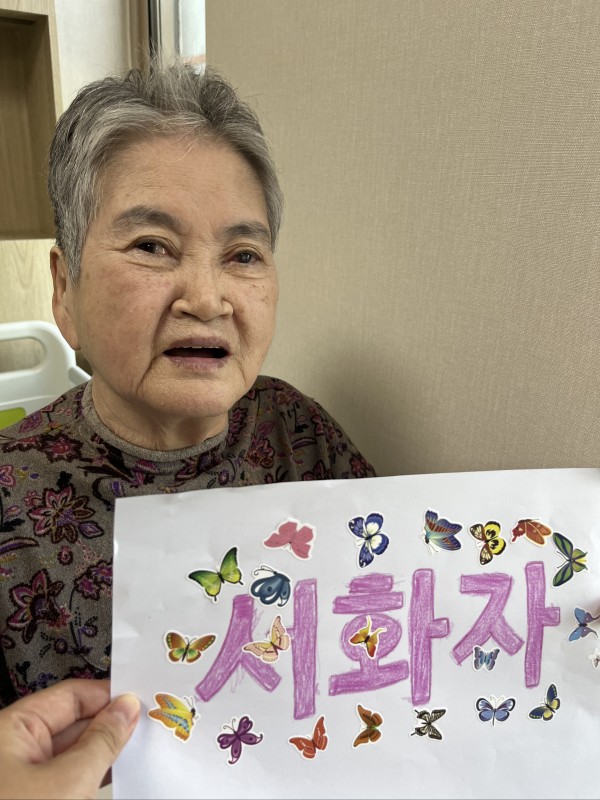 서화자